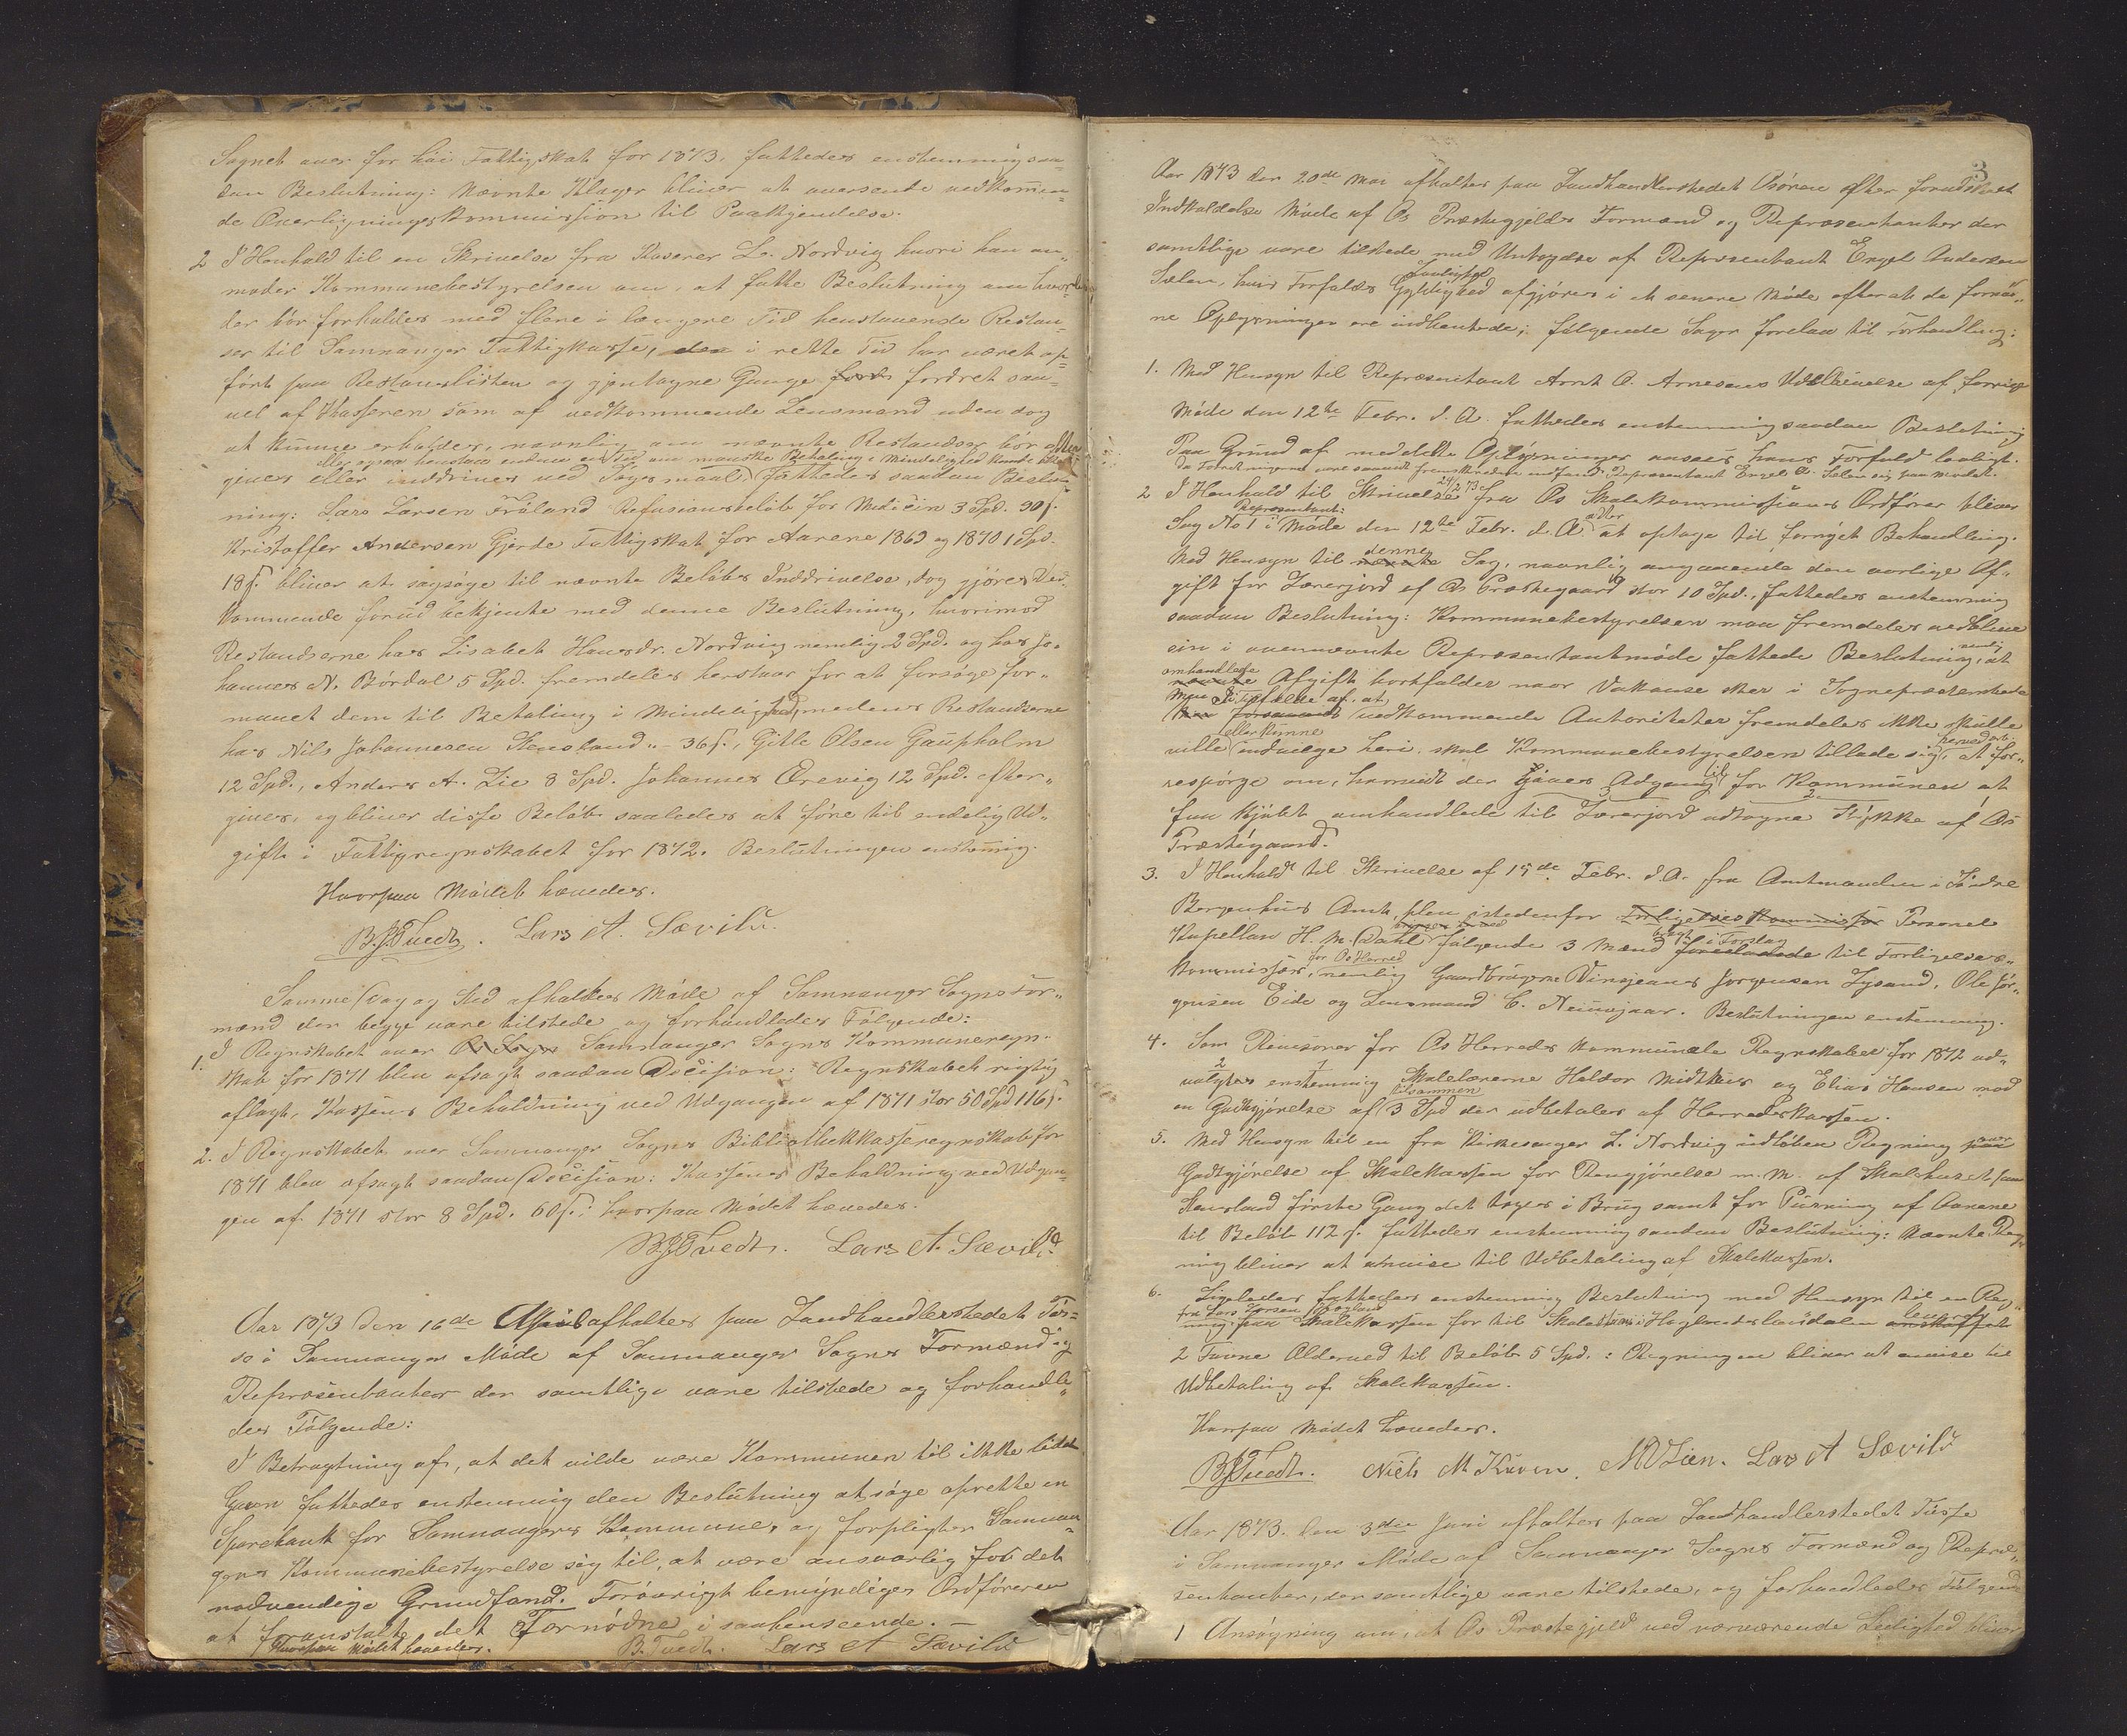 Sognet over for høi Fattigskat for 1873, fattedes enstemmig saa-
dan Beslutning: Nævnte Klager bliver at oversende vedkommen-
de Overligningskommission til Paakjendelse.
2 I Henhold til en Skrivelse fra Kaserer L. Nordvig hvori han an-
moder Kommunebestyrelsen om, at fatte Beslutning om hvor-
der bør forholdes med flere i længere Tid henstaaende Restan-
ser til Samnanger Fattigkasse, i rette Tid har været op-
ført paa Restanselisten og gjentagne Gange fordret saa-
vel af Kasseren som af vedkommende Lensmand uden dog
at kunne erholdes, navnlig om nævnte Restandser bør efter
eller ogsaa henstaa endnu en Tid om maaske Betaling i Mindelighed kunde
gives eller inddrives ved Søgsmaal, fattedes saadan Beslut-
ning: Lars Larsen Frøland Refusionsbeløb for Medicin 3 Spd. 90 s.
Kristoffer Andersen Gjerde Fattigskat for Aarene 1869 og 1870 1 Spd.
18 s. bliver at sagsøge til nævnte Beløbs Inddrivelse, dog gjøres Ved-
kommende forud bekjendte med denne Beslutning, hvorimod
Restandserne hos Lisabet Hansdr. Nordvig nemlig 2 Spd. og hos Jo-
hannes N. Børdal 5 Spd. fremdeles henstaar for at forsøge for-
maaet dem til Betaling i Mindelighed, medens Restandserne
hos Nils Johannesen Steensland "- 36 s., Gitle Olsen Gaupholm
12 Spd., Anders A. Lie 8 Spd. Johannes Ørevig 12 Spd. efter-
gives, og bliver disse Beløb saaledes at føre til endelig Ud-
gift i Fattigregnskabet for 1872. Beslutningen enstemmig.
Hvorpaa Mødet hævedes.
B. J. Tvedt. Lars A. Sævild.
Samme Dag og Sted afholdtes Møde af Samnanger Sogns For-
mænd der begge vare tilstede og forhandledes Følgende:
1. I Regnskabet over Os Sogn Samnanger Sogns Kommuneregn-
skab for 1871 blev afsagt saadan Decision: Regnskabet rigtig
aflagt, Kassens Beholdning ved Udgangen af 1871 stor 50 Spd 116 s.
2. I Regnskabet over Samnanger Sogns Bibliothekkasseregnskab for
1871 blev afsagt saadan Decision: Kassens Beholdning ved Udgan-
gen af 1871 stor 8 Spd. 60 s.: hvorpaa Mødet hævedes.
B J Tvedt. Lars A. Sævild
Aar 1873 den 16de April afholtes paa Landhandlerstedet Tøs-
se i Samnanger Møde af Samnanger Sogns Formænd og
Repræsentanter der samtlige vare tilstede og forhandle-
des Følgende:
I Betragtning af, at det vilde være Kommunen til ikke liden
Gavn fattedes enstemmig den Beslutning at søge oprette en
Sparebank for Samnangers Kommune, og forpligter Samnan-
gers Kommunebestyrelse sig til, at være ansvarlig for det
nødvendige Grundfond. Forøvrigt bemyndiges Ordføreren
at foranstalte det Fornødne i saahenseende. -
Hvorpaa Mødet hævedes. B. Tvedt. Lars A Sævild
3
Aar 1873 den 20de Mai afholtes paa Landhandlerstedet Osøren efter forudskeet
Indkaldelse Møde af Os Præstegjelds Formænd og Repræsentanter der
samtlige vare tilstede med Undtagelse af Repræsentant Engel Andersen
Sælen, hvis Forfalds Gyldighed afgjøres i et senere Møde efterat de fornød-
Lovlighed
ne Oplysninger ere indhentede; følgende Sager forelaa til Forhandling:
1. Med Hensyn til Repræsentant Arnt O. Arnesens Udeblivelse af forrige
Møde den 12te Febr. d. A. fattedes enstemmig saadan Beslutning
Paa Grund af meddelte Oplysninger ansees hans Forfald lovligt.
da Forretningerne vare saavidt fremskreden indfandt Repræsentant Engel A. Sælen sig paa Mødet.
2 I Henhold til Skrivelse 24/2 73 fra Os Skolekommissions Ordfører bliver
Repræsentant:
Sag No 1 i Møde den 12te Febr. d. A. atter at optage til fornyet Behandling.
Med Hensyn til nævnte denne Sag, navnlig angaaende den aarlige Af-
gift for Lærerjord af Os Præstegaard stor 10 Spd., fattedes enstemmig
saadan Beslutning: Kommunebestyrelsen maa fremdeles vedblive
sin i ovennævnte Repræsentantmøde fattede Beslutning, nemlig at
omhandlede
nævnte Afgift bortfalder naar Vakanse sker i Sognepræstembede
Men I Tilfælde af, at
forsaavidt vedkommende Autoriteter fremdeles ikke skulle
eller kunne
ville indvilge heri, skal Kommunebestyrelsen tillade sig herved at fo-
respørge om, hvorvidt der gives Adgang til for Kommunen at
faa kjøbt omhandlede til Lærerjord udtagne Stykke af Os
Præstegaard.
3. I Henhold til Skrivelse af 15de Febr. d. A. fra Amtmanden i Søndre
Bergenhus Amt, blev istedenfor Forligelseskommissær Personel
Kapellan H. M. Dahl følgende 3 Mænd bragt i Forslag foreslaaede til Forligelses-
for Os Herred
kommissær, nemlig Gaardbrugerne Vinsjeans Jørgensen Lysand, Ole Jør-
gensen Eide og Lensmand C. Neumjaar. Beslutningen enstemmig.
4. Som Revisorer for Os Herreds kommunale Regnskaber for 1872 ud-
2 1
valgtes enstemmig Skolelærerne Haldor Midthus og Elias Hansen mod
tilsammen
en Godtgjørelse af 3 Spd der udbetales af Herredskassen.
5. Med Hensyn til en fra Kirkesanger L. Nordvig indløben Regning paa over
Godtgjørelse af Skolekassen for Rengjørelse m. M. af Skolehuset paa
Steensland første Gang det toges i Brug samt for Pudsning af Ovnene
til Beløb 112 s. fattedes enstemmig saadan Beslutning: Nævnte Reg-
ning bliver at anvise til Udbetaling af Skolekassen.
6. Ligeledes fattedes enstemmig Beslutning med Hensyn til en Reg-
fra Lars Larsen Haugland leverede
ning paa Skolekassen for til Skole i Hauglandslaudalen anskaffede
2 Favne Olderved til Beløb 5 Spd.: Regningen bliver at anvise til
Udbetaling af Skolekassen.
Hvorpaa Mødet hævedes.
B J Tvedt. Niels M Kuven. M O Lien. Lars A Sævild
Aar 1873 den 3die Juni afholtes paa Landhandlerstedet Tøsse
i Samnanger Møde af Samnanger Sogns Formænd og Repræ-
sentanter, der samtlige vare tilstede, og forhandledes Følgende
1 Ansøgning om, at Os Præstegjeld ved nærværende Ledighed bliver